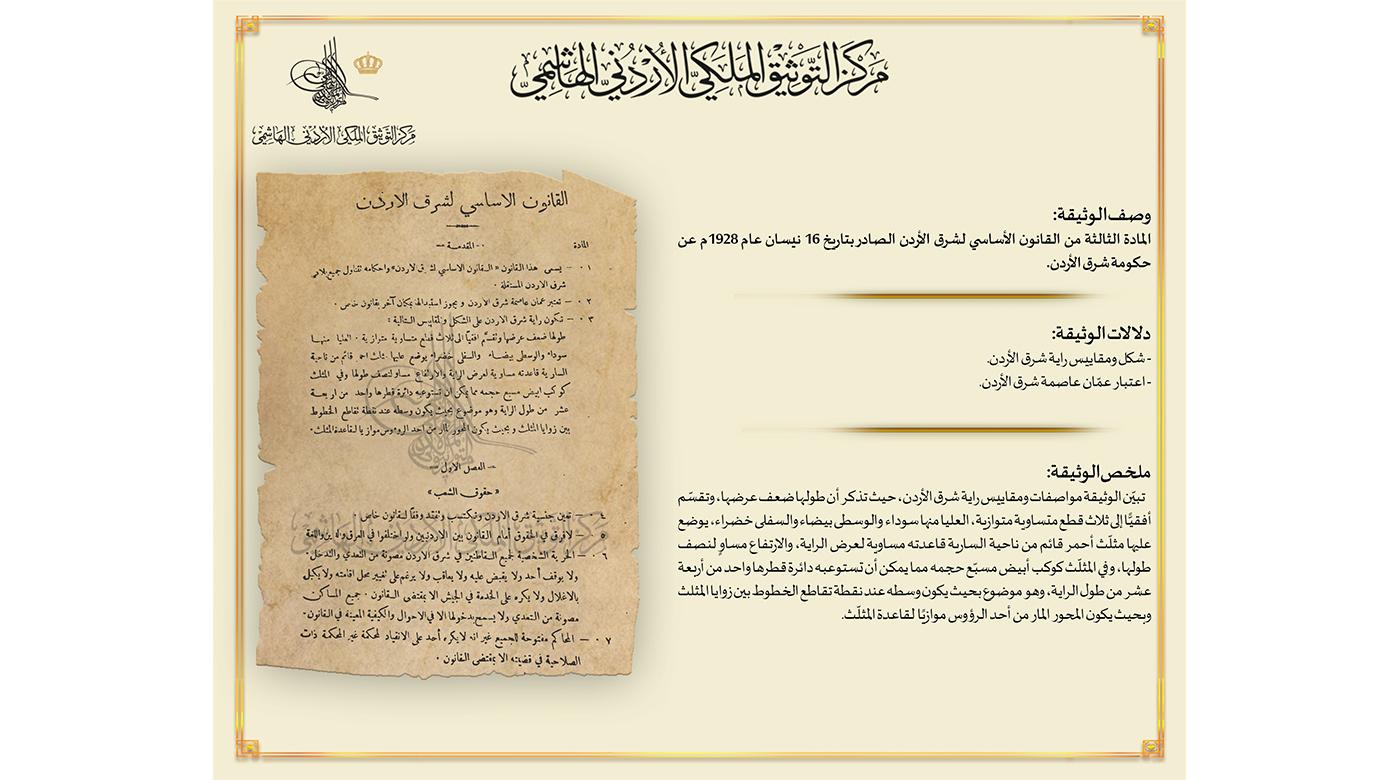 مركز التوثيق الملكي الأردني الهاشمي
مركز التوثيق الملكي الأردني الهاشمي
وصف الوثيقة:
المادة الثالثة من القانون الأساسي لشرق الأردن الصادر بتاريخ 16 نيسان عام 1928م عن
حكومة شرق الأردن.
دلالات الوثيقة:
- شكل ومقاييس راية شرق الأردن.
- اعتبار عمّان عاصمة شرق الأردن.
ملخص الوثيقة:
تبيّن الوثيقة مواصفات ومقاييس راية شرق الأردن، حيث تذكر أن طولها ضعف عرضها، وتقسّم
أفقيًّا إلى ثلاث قطع متساوية متوازية، العليا منها سوداء والوسطى بيضاء والسفلى خضراء، يوضع
عليها مثلّث أحمر قائم من ناحية السارية قاعدته مساوية لعرض الراية، والارتفاع مساوٍ لنصف
طولها، وفي المثلّث كوكب أبيض مسبّع حجمه مما يمكن أن تستوعبه دائرة قطرها واحد من أربعة
عشر من طول الراية، وهو موضوع بحيث يكون وسطه عند نقطة تقاطع الخطوط بين زوايا المثلث
وبحيث يكون المحور المار من أحد الرؤوس موازيًا لقاعدة المثلّث.
القانون الاساسي لشرق الاردن
المادة
-· المقدمة -·
٠١ - يسمى هذا القانون « القانون الاساسي لشرق الاردن» واحكامه تتناول جميع بلاد
شرق الاردن المستقلة ·
٠٢ - تعتبر عمان عاصمة شرق الاردن ويجوز استبدالها بمكان آخر بقانون خاص ·
٠٣ - تكون راية شرق الاردن على الشكل والمقاييس التالية :
طولها ضعف عرضها وتقسم افقيًا الى ثلاث قطع متساوية متوازية · العليا منهـا
سوداء والوسطى بيضاء والسفلى خضراء يوضع عليها مثلث احمر قائم من ناحية
السارية قاعدته مساوية لعرض الراية والارتفاع مساو لنصف طولها وفي المثلث
كوكب ابيض مسبع حجمه مما يمكن ان تستوعبه دائرة قطرها واحد من اربعـة
عشر من طول الراية وهو موضوع بحيث يكون وسطه عند نقطة تقاطع الخطوط
بين زوايا المثلث وبحيث يكون المحور المار من احد الرووس موازيا لقاعدة المثلث·
-· الفصل الاول -·
« حقوق الشعب»
٠٤ - تعين جنسية شرق الاردن وتكتسب وتفقد وفقًا لقانون خاص ·
٠٥ - لا فرق في الحقوق أمام القانون بين الاردنيين ولو اختلفوا في العرق والدين واللغة
٠٦ - الحرية الشخصية لجميع القاطنين في شرق الاردن مصونة من التعدي والتدخل ·
ولا يوقف أحد ولا يقبض عليه ولا يعاقب ولا يرغم على تغيير محل اقامته ولا يكبل
بالاغلال ولا يكره على الخدمة في الجيش الا بمقتضى القانون · جميع المساكن
مصونة من التعدي ولا يسمح بدخولها الا في الاحوال والكيفية المعينه في القانون·
٠٧ - المحاكم مفتوحة للجميع غير انه لا يكره أحد على الانقياد لمحكمة غير المحكمة ذات
الصلاحية في قضيته الا بمقتضى القانون ·
مركز التوثيق الملكي الأردني الهاشمي